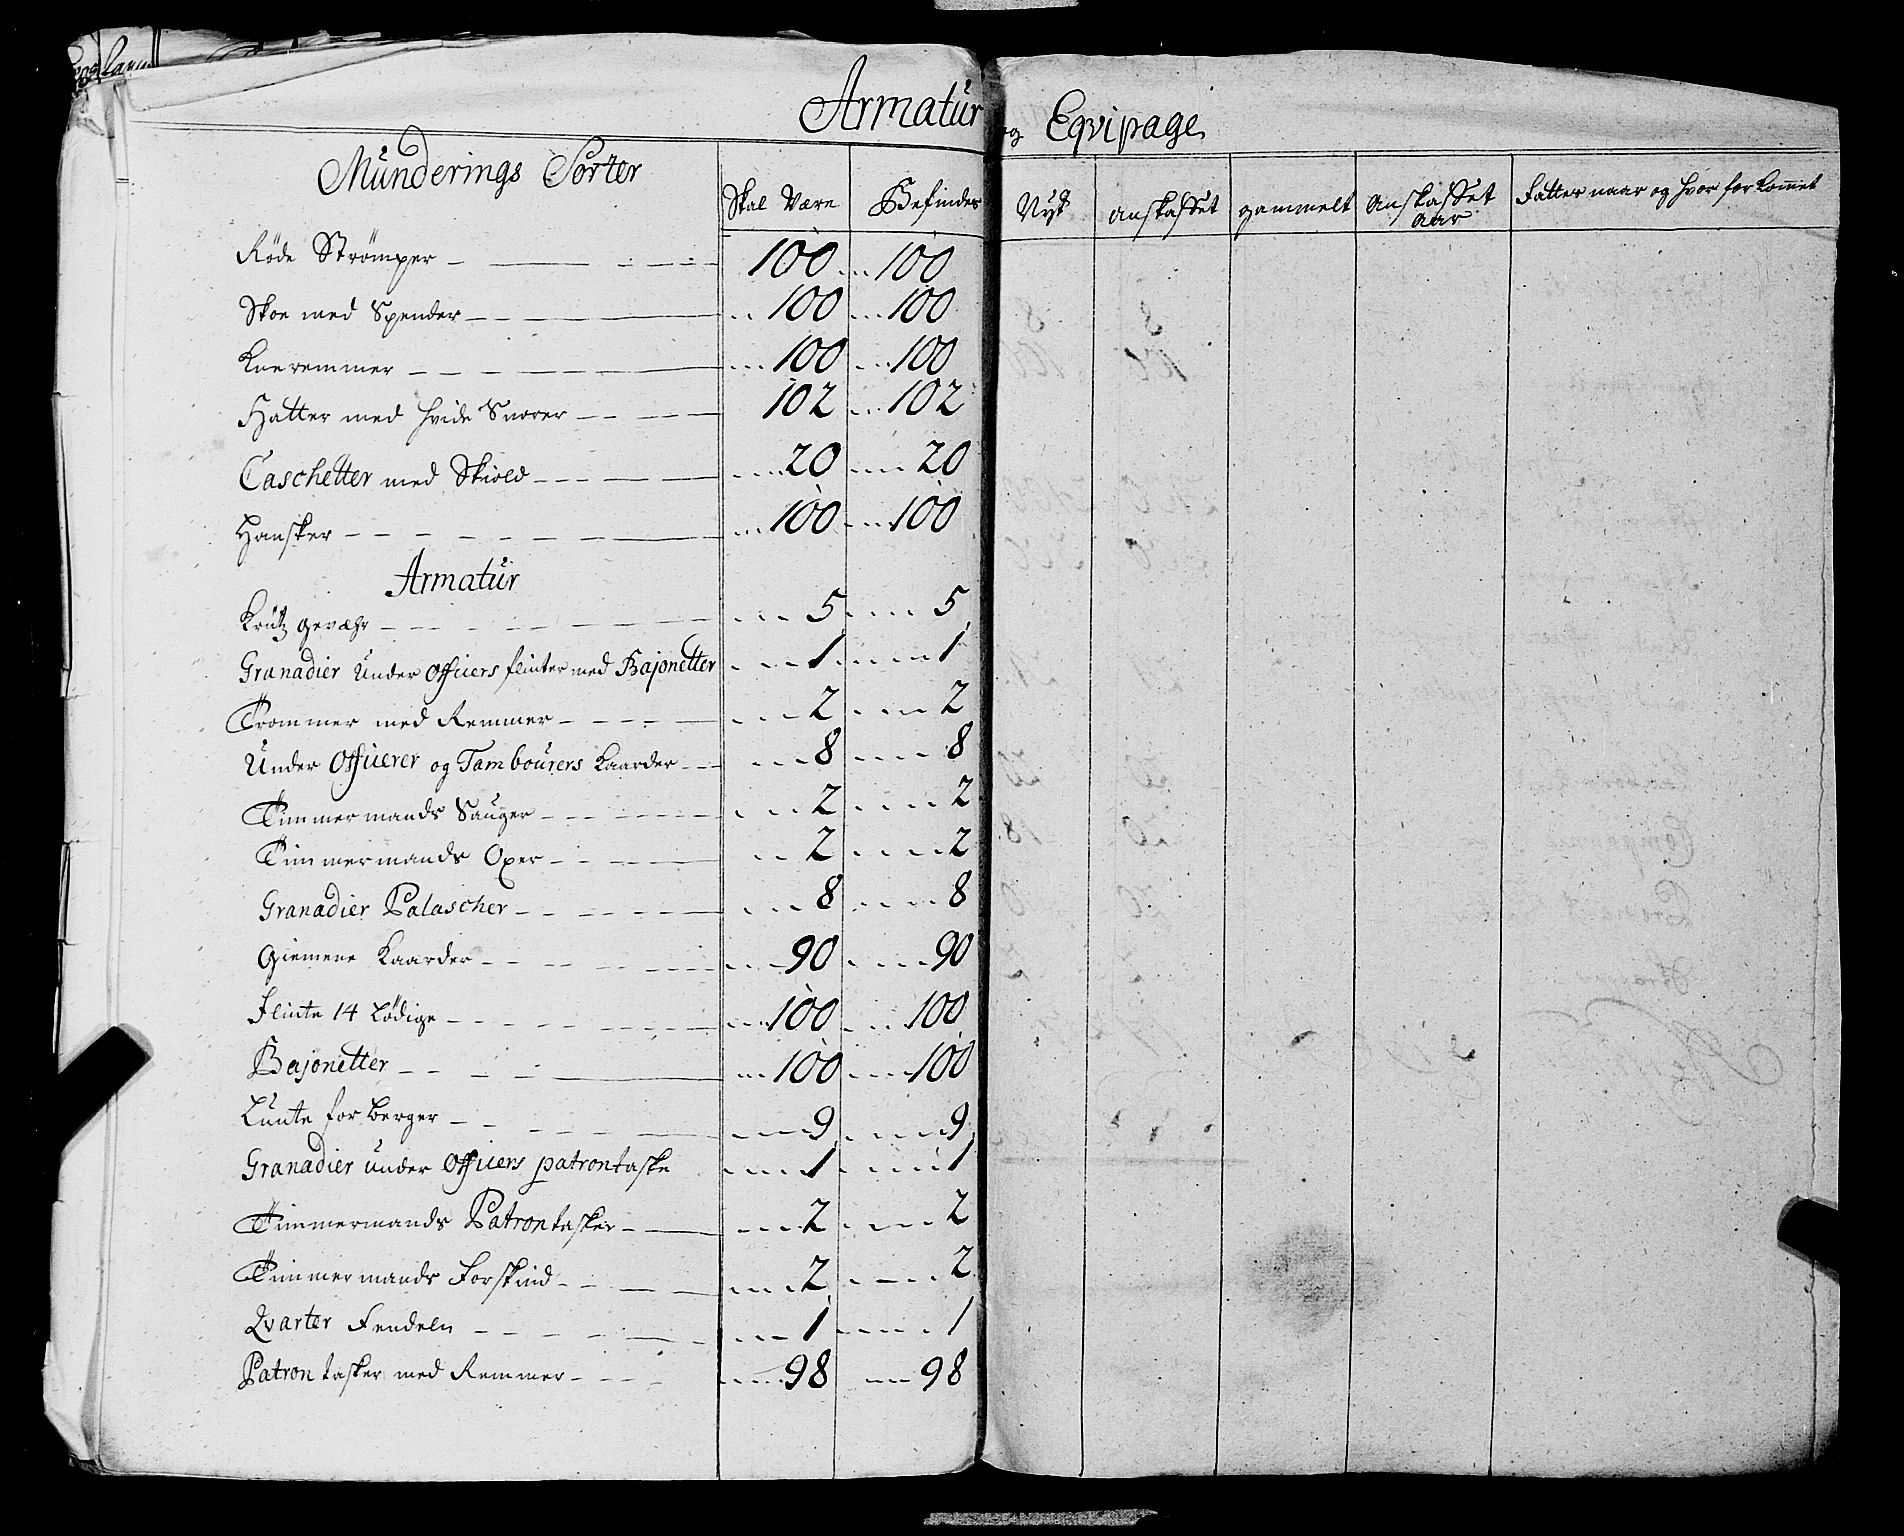 Armatur og Eqvipage
Münderings Sorter Skal Være Befindes Nyt anskaffet gammelt Anskaffet Aar Fatter naar og hvor for kommet
Røde Strömper 100 100
Skoe med Spender 100 100
Knæremmer 100 100
Hatter med hvide Snorer 102 102
Caschetter med Skiold 20 20
Hansker 100 100
Armatür
Krütz gevæhr 5 5
Granadier Under Officiers flinter med Bajonetter 1 1
Trommer med Remmer 2 2
Under Officerer og Tambourers Kaarder 8 8
Timmermands Sauger 2 2
Timmermands Oxer 2 2
Granadier Palascher 8 8
Giemene Kaarder 90 90
Flinte 14 Lödige 100 100
Bajonetter 100 100
Lünte for berger 9 9
Granadier under Officiers patrontaske 1 1
Timmermands Patrontasker 2 2
Timmermands Forskind 2 2
Qvarter Fendeln 1 1
Patron tasker med Remmer 98 98